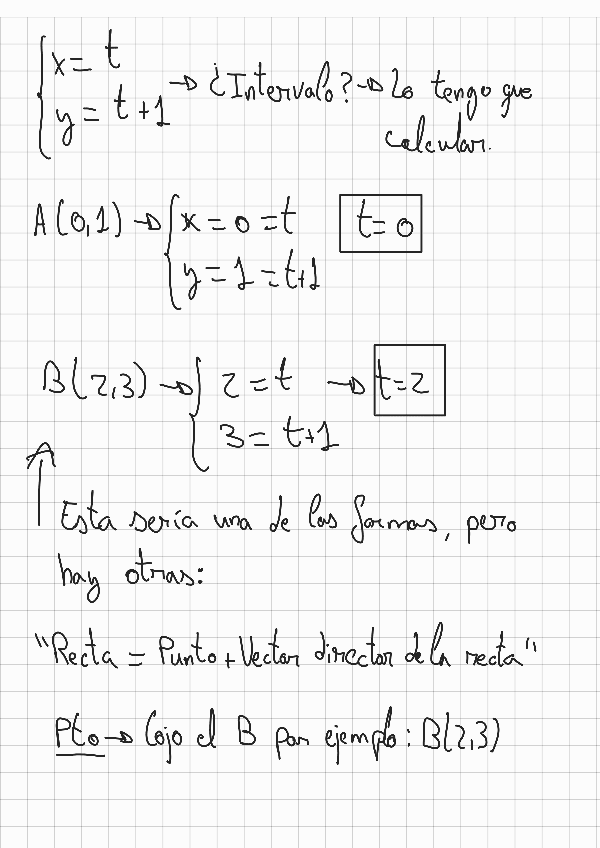 x = t
y = t+1 → ¿Intervalo? → Lo tengo que
calcular.
A(0,1) → x = 0 = t t=0
y = 1 = t+1
B(2,3) → 2 = t → t=2
3 = t+1
Esta sería una de las formas, pero
hay otras:
"Recta = Punto + Vector director de la recta"
Pto → Cojo el B por ejemplo: B(2,3)